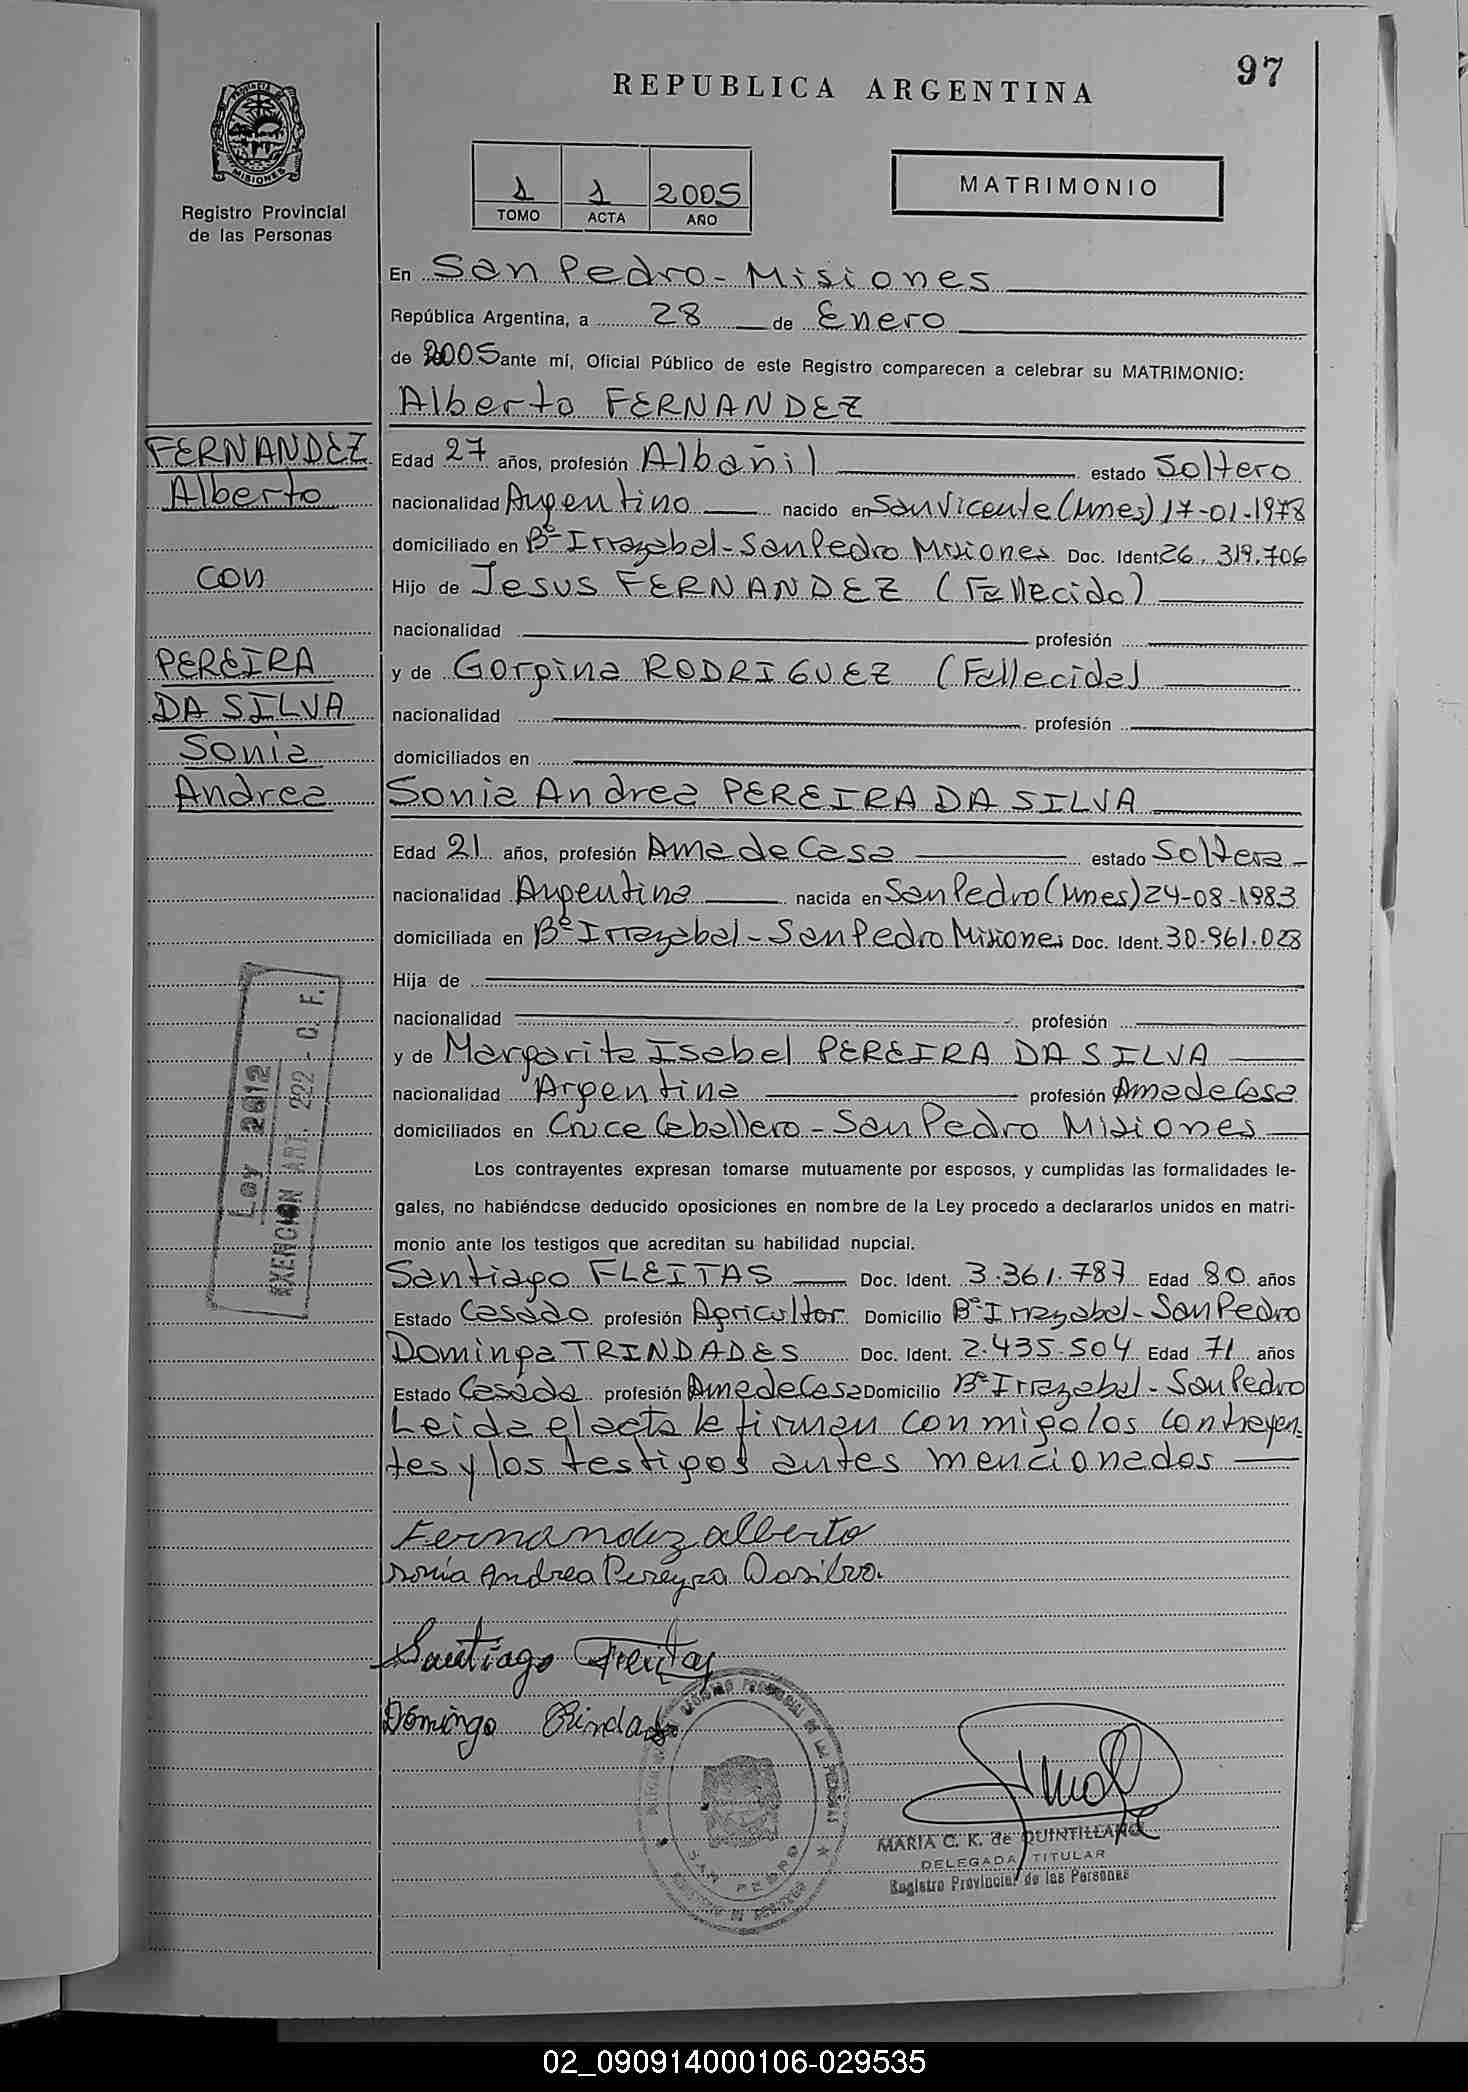 97
REPUBLICA ARGENTINA
PROVINCIA DE
MISIONES
Registro Provincial
de las Personas
1 1 2005
TOMO ACTA AÑO
MATRIMONIO
En San Pedro - Misiones
República Argentina, a 28 de Enero
de 2005 ante mí, Oficial Público de este Registro comparecen a celebrar su MATRIMONIO:
Alberto FERNANDEZ
FERNANDEZ
Alberto
con
PEREIRA
DA SILVA
Sonia
Andrea
Edad 27 años, profesión Albañil estado Soltero
nacionalidad Argentino nacido en San Vicente (Mnes) 17-01-1978
domiciliado en Bº Irrazabal - San Pedro Misiones Doc. Ident. 26.319.706
Hijo de Jesus FERNANDEZ (Fallecido)
nacionalidad profesión
y de Gorgina RODRIGUEZ (Fallecida)
nacionalidad profesión
domiciliados en
Sonia Andrea PEREIRA DA SILVA
Edad 21 años, profesión Ama de Casa estado Soltera
nacionalidad Argentina nacida en San Pedro (Mnes) 24-08-1983
domiciliada en Bº Irrazabal - San Pedro Misiones Doc. Ident. 30.961.028
Hija de
nacionalidad profesión
y de Margarita Isabel PEREIRA DA SILVA
nacionalidad Argentina profesión Ama de Casa
domiciliados en Cruce Caballero - San Pedro Misiones
Ley 2812
EXENCION ART. 222 - C. F.
Los contrayentes expresan tomarse mutuamente por esposos, y cumplidas las formalidades le-
gales, no habiéndose deducido oposiciones en nombre de la Ley procedo a declararlos unidos en matri-
monio ante los testigos que acreditan su habilidad nupcial.
Santiago FLEITAS Doc. Ident. 3.361.787 Edad 80 años
Estado Casado profesión Agricultor Domicilio Bº Irrazabal - San Pedro
Dominga TRINDADES Doc. Ident. 2.435.504 Edad 71 años
Estado Casada profesión Ama de Casa Domicilio Bº Irrazabal - San Pedro
Leida el acta la firman conmigo los contrayen-
tes y los testigos antes mencionados
Fernandez alberto
sonia Andrea Pereyra Dasilva.
Santiago Fleitas
Domingo
REGISTRO PROVINCIAL DE LAS PERSONAS
SAN PEDRO
MARIA C. K. de QUINTILLAN
DELEGADA TITULAR
Registro Provincial de las Personas
02_090914000106-029535